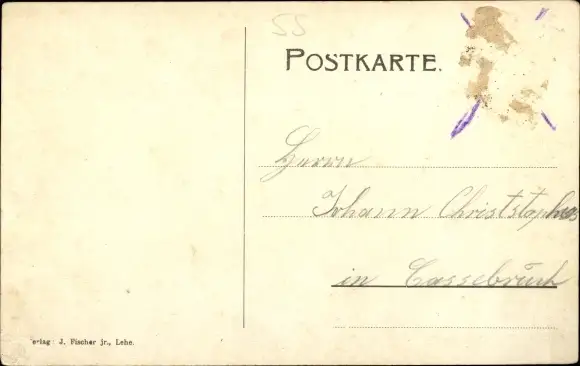 55
POSTKARTE.
Herrn
Johann Christstophers
in Cassebruch
erlag: J. Fischer jr., Lehe.